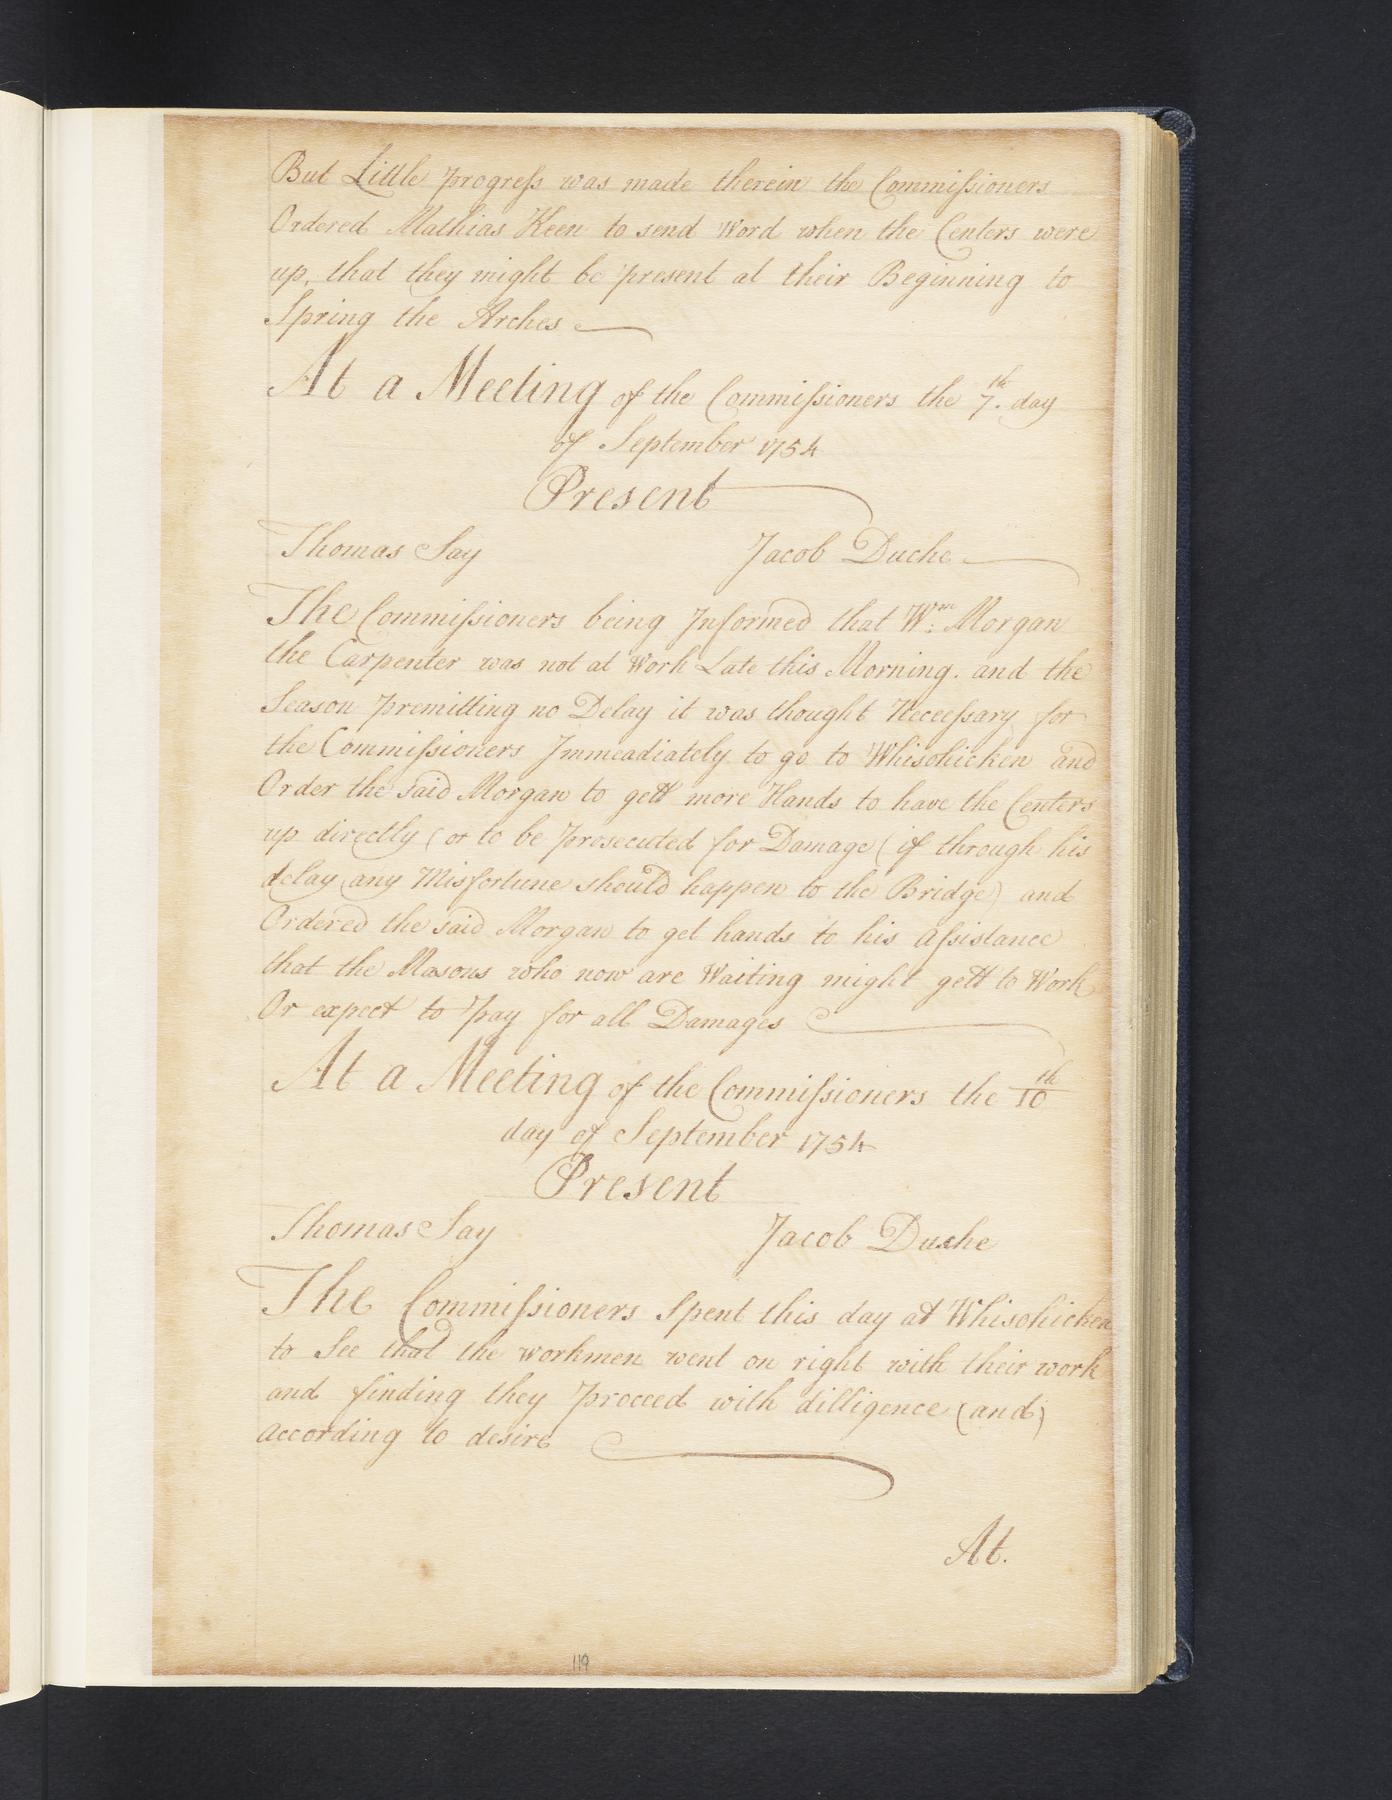 But Little progreſs was made therein the Commiſsioners
Ordered Mathias Keen to send Word when the Centers were
up, that they might be present at their Beginning to
Spring the Arches
At a Meeting of the Commiſsioners the 7.th day
of September 1754
Present
Thomas Say Jacob Duche
The Commiſsioners being Informed that Wm: Morgan
the Carpenter was not at Work Late this Morning. and the
Season premitting no Delay it was thought Neceeſsary for
the Commiſsioners Immeadiately to go to Whisohicken and
Order the said Morgan to gett more Hands to have the Centers
up directly (or to be prosecuted for Damage (if through his
delay any Misfortune should happen to the Bridge) and
Ordered the said Morgan to get hands to his aſsistance
that the Masons who now are Waiting might gett to Work
Or expect to pay for all Damages
At a Meeting of the Commiſsioners the 10th
day of September 1754
Present
Thomas Say Jacob Duche
The Commiſsioners Spent this day at Whisohicken
to See that the workmen went on right with their work
and finding they proceed with dilligence (and)
according to desire
At.
119